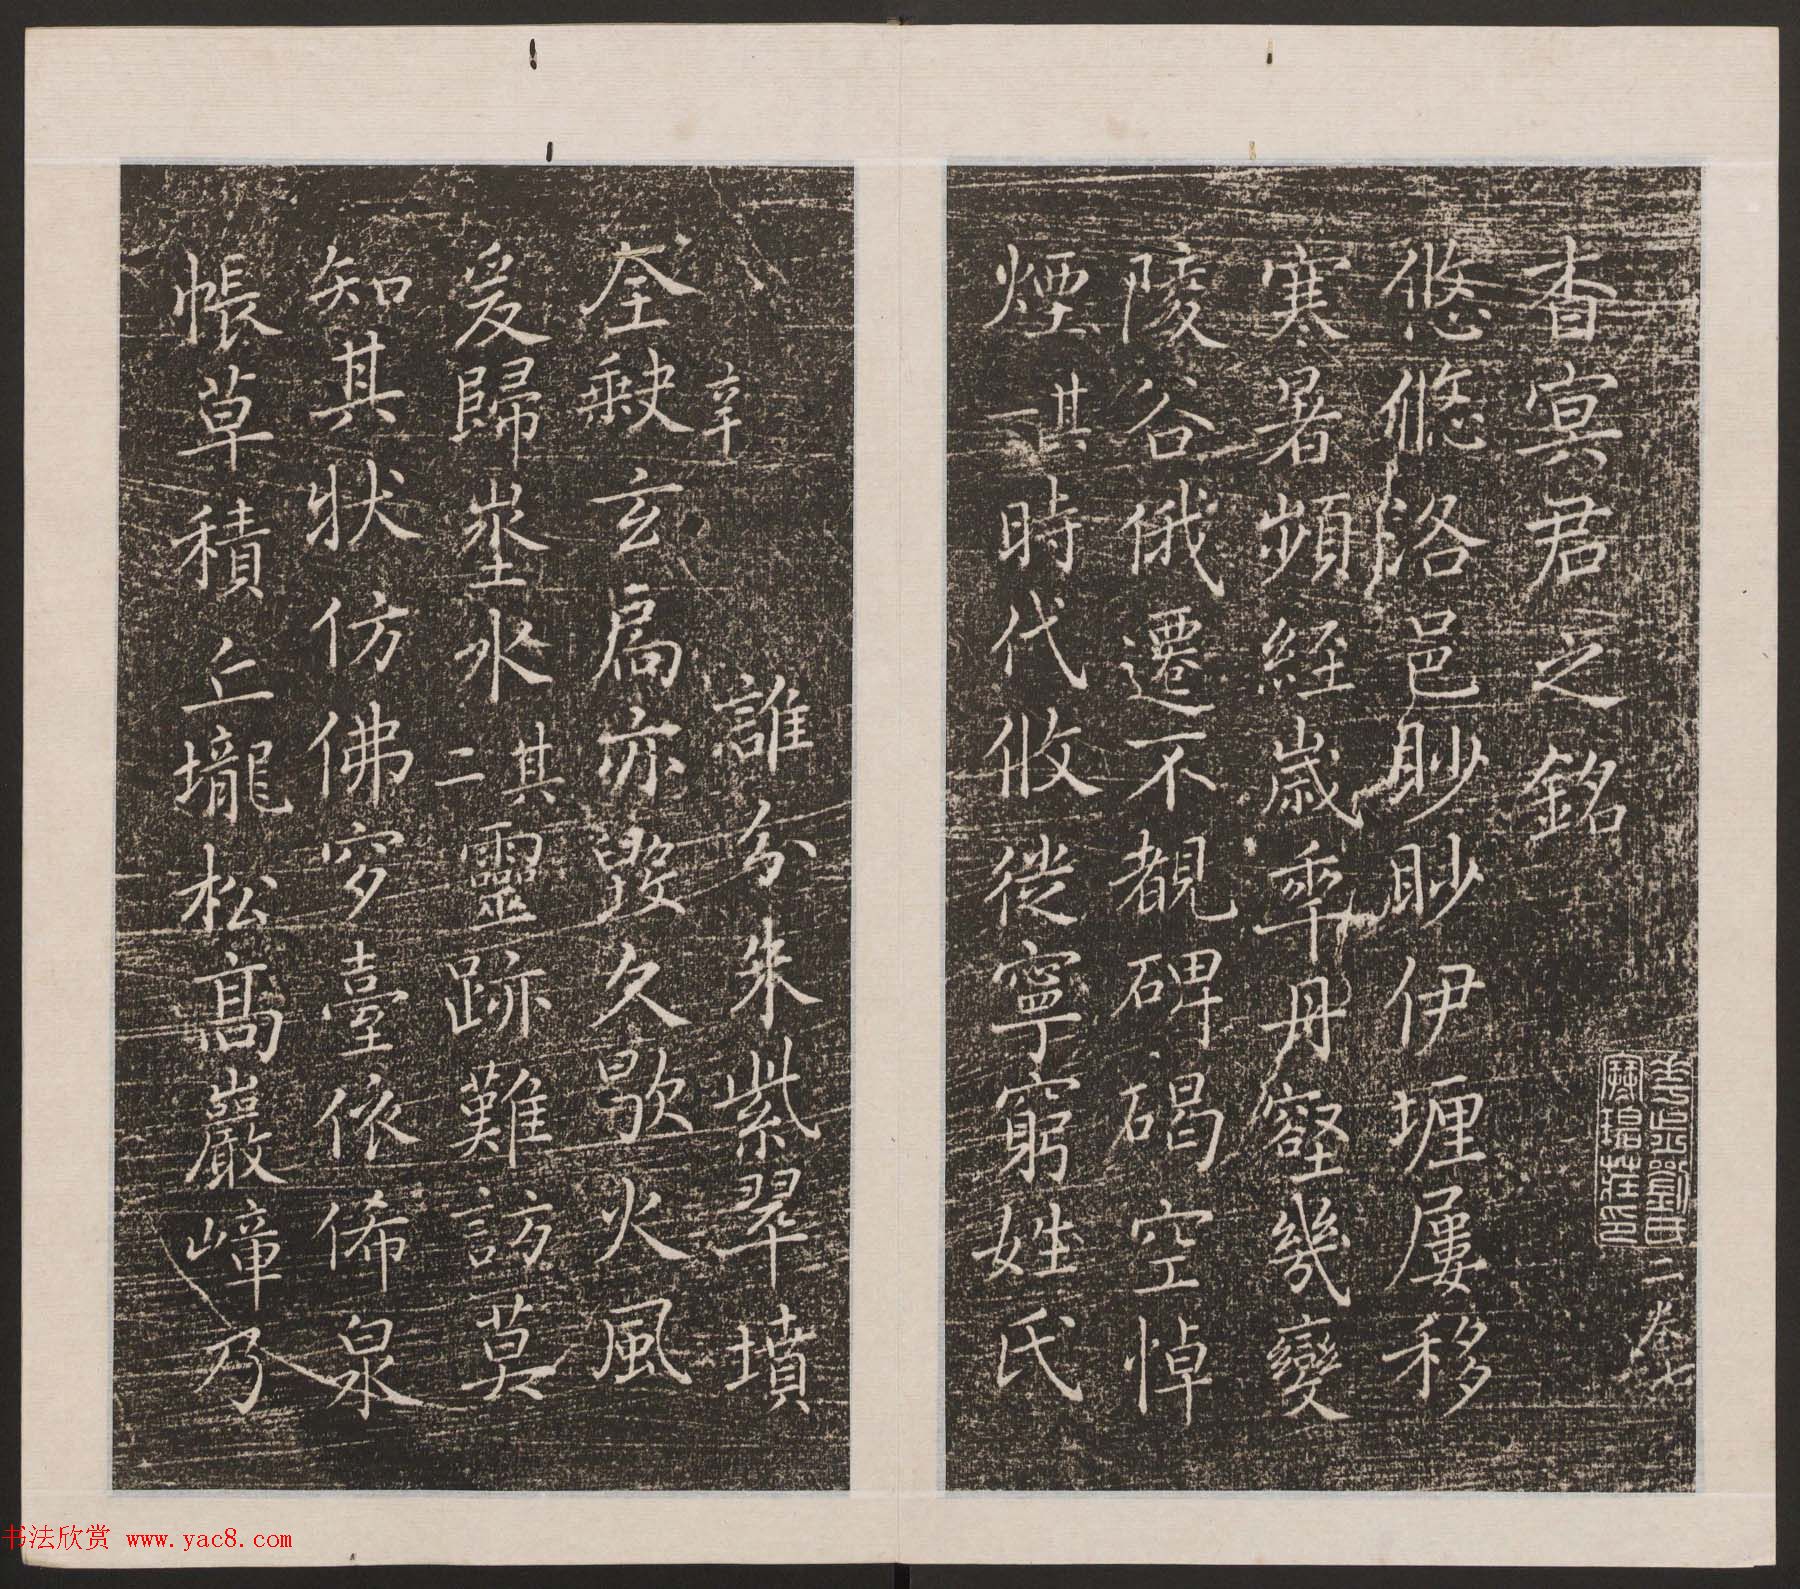 杳冥君之銘
悠悠洛邑眇眇伊壥屢移
寒暑頻經歲年丹壑幾變
陵谷俄遷不覩碑碣空悼
煙其一時代攸徙寧窮姓氏
二 卷七
辛
誰分朱紫翠墳
全缺玄扃亦毀久歇火風
爰歸埊水其二靈跡難訪莫
知其狀仿佛穸臺依俙泉
帳草積丘壠松高巖嶂乃
书法欣赏 www.yac8.com